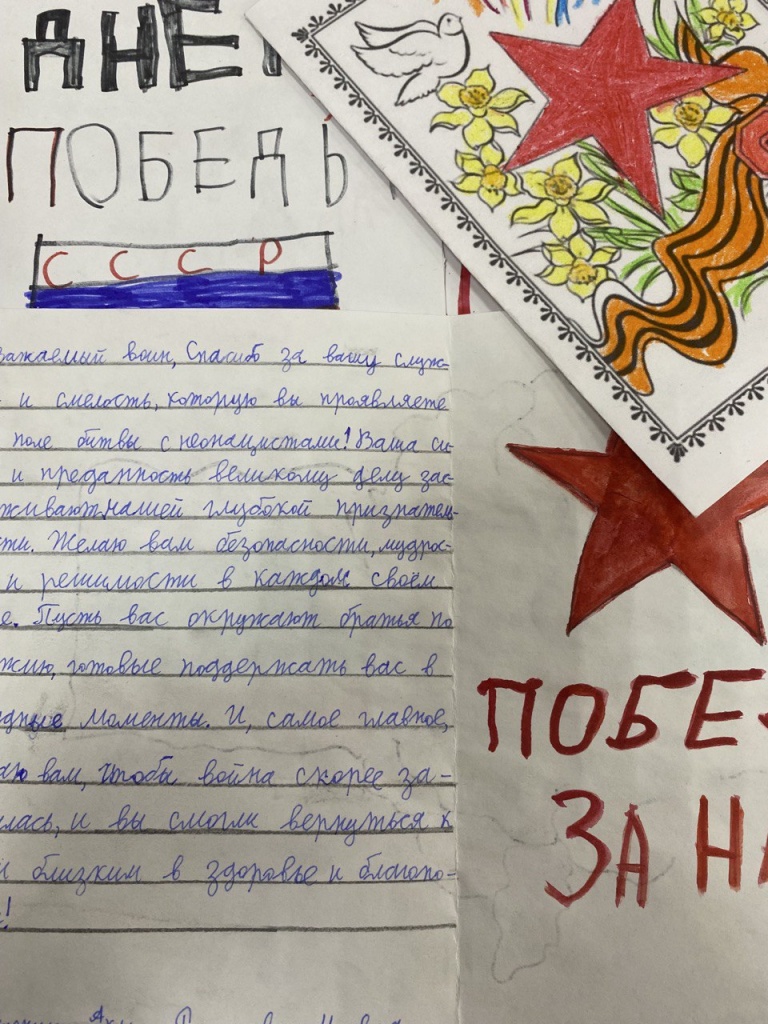 ДНЕ
ПОБЕДЫ
СССР
важаемый воин, Спасибо за вашу служ-
и смелость, которую вы проявляете
поле битвы с неонацистами! Ваша си-
и преданность великому делу зас-
живают нашей глубокой признатель-
сти. Желаю вам безопасности, мудрос-
и решимости в каждом своём
е. Пусть вас окружают братья по
жию, готовые поддержать вас в
удные моменты. И, самое главное,
аю вам, чтобы война скорее за-
илась, и вы смогли вернуться к
близким в здоровье и благопо-
ПОБЕ
ЗА НА